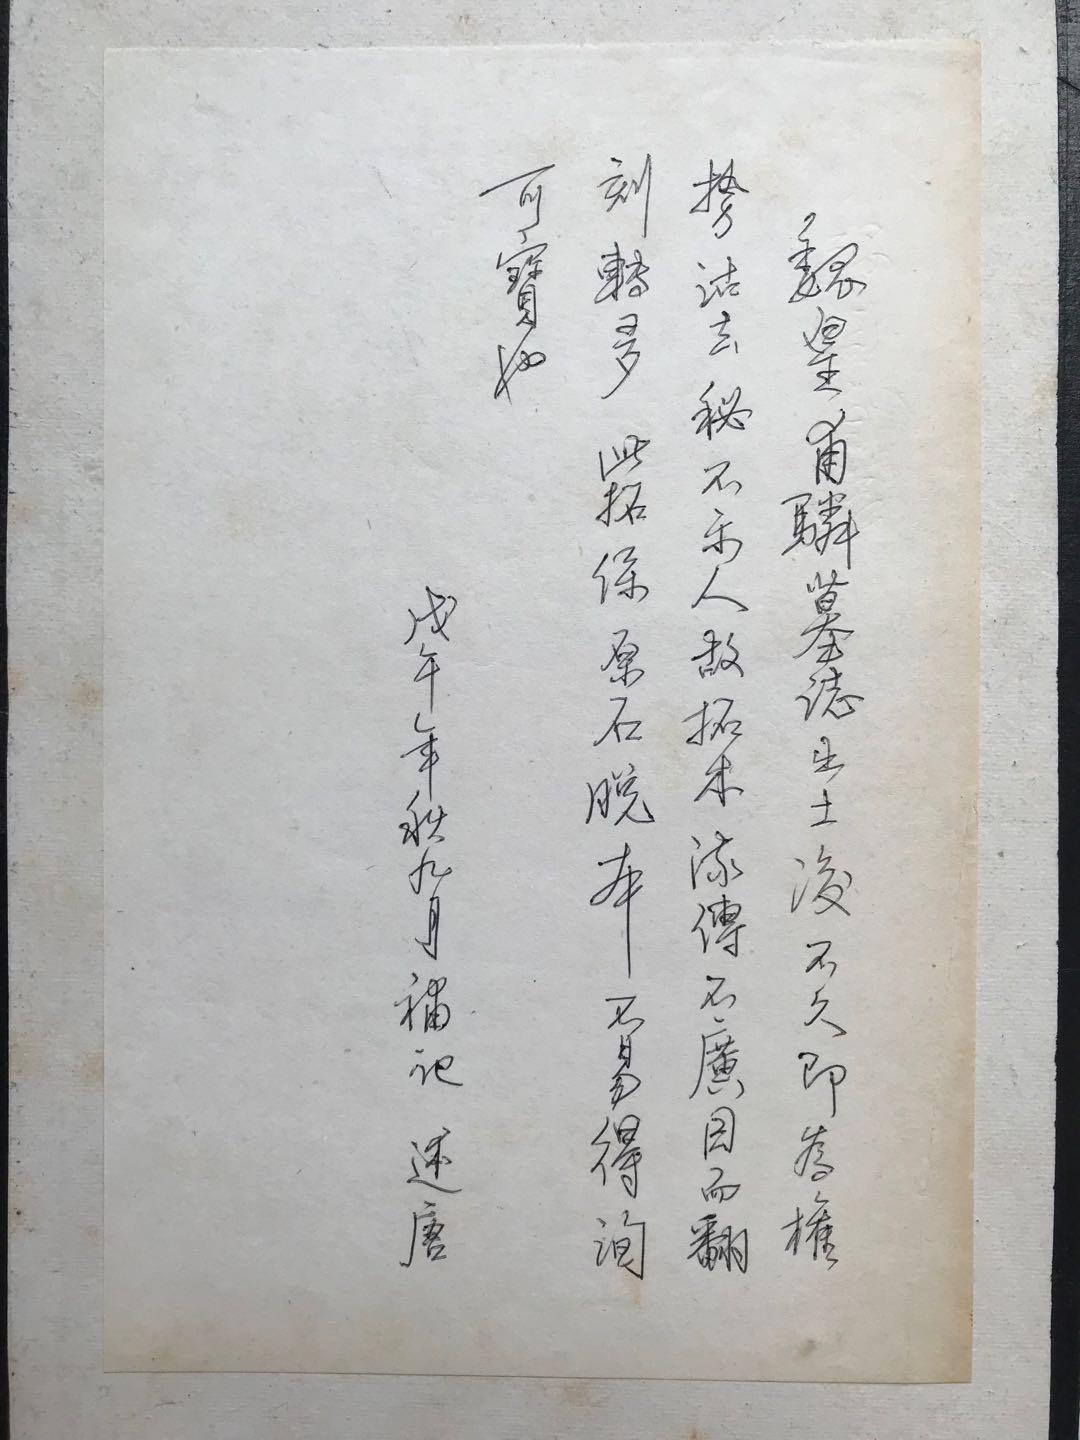 魏皇甫驎墓誌出土後不久即為權
勢沽去秘不示人故拓本流傳不廣因而翻
刻轉多此拓係原石脫本不易得洵
可寶也
戊午年秋九月補記 述唐